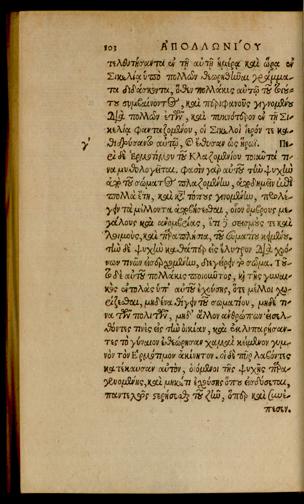 ΑΠΟΛΛΩΝΙΟΥ
τελευτήσαντα ἐν τῇ αὐτῇ ἡμέρᾳ καὶ ὥρᾳ ἐν
Σικελίᾳ ὑπὸ πολλῶν θεωρηθῆναι γράμμα-
τα διδάσκοντα, ὅθεν πολλάκις αὐτῷ τοῦ τοιού-
του συμβαίνοντος, καὶ περιφανοῦς γινομένου
διὰ πολλῶν ἐτῶν, καὶ πυκνότερον ἐν τῇ Σι-
κελίᾳ φανταζομένου, οἱ Σικελοὶ ἱερόν τε κα-
γ΄ θιδρύσαντο αὐτῷ, καὶ ἔθυσαν ὡς ἥρωι. Πε-
ρὶ δὲ Ἑρμοτίμου τοῦ Κλαζομενίου τοιαῦτά τι-
να μυθολογεῖται. Φασὶν γὰρ αὐτοῦ τὴν ψυχὴν
ἀπὸ τοῦ σώματος πλαζομένην, ἀποδημεῖν ἐπὶ
πολλὰ ἔτη, καὶ κατὰ τόπους γινομένην, προλέ-
γειν τὰ μέλλοντα ἀποβήσεσθαι, οἷον ὄμβρους με-
γάλους καὶ ἀνομβρίας, ἔτι δὲ σεισμούς τε καὶ
λοιμούς, καὶ τὰ παραπλήσια, τοῦ σωματίου κειμένου.
τὴν δὲ ψυχὴν καθάπερ εἰς ἔλυτρον διὰ χρό-
νων τινῶν εἰσερχομένην, διεγείρειν τὸ σῶμα. Τοῦ-
το δὲ αὐτοῦ πολλάκις ποιοῦντος, καὶ τῆς γυναι-
κὸς ἐντολὰς ὑπ' αὐτοῦ ἐχούσης, ὅτε μέλλοι χω-
ρίζεσθαι, μηδένα θιγεῖν τοῦ σωματίου, μηδέ τι-
να τῶν πολιτῶν, μηδ' ἄλλον ἀνθρώπων εἰσελ-
θόντες τινὲς εἰς τὴν οἰκίαν, καὶ ἐκλιπαρήσαν-
τες τὸ γύναιον ἐθεώρησαν χαμαὶ κείμενον γυμ-
νὸν τὸν Ἑρμότιμον ἀκίνητον. οἱ δὲ πῦρ λαβόντες
κατέκαυσαν αὐτὸν, οἰόμενοι τῆς ψυχῆς παρα-
γενομένης, καὶ μηκέτι ἐχούσης ὅπου εἰσδύσεται,
παντελῶς στερήσεσθαι τοῦ ζῆν, ὅπερ καὶ συνέ-
πεσεν.